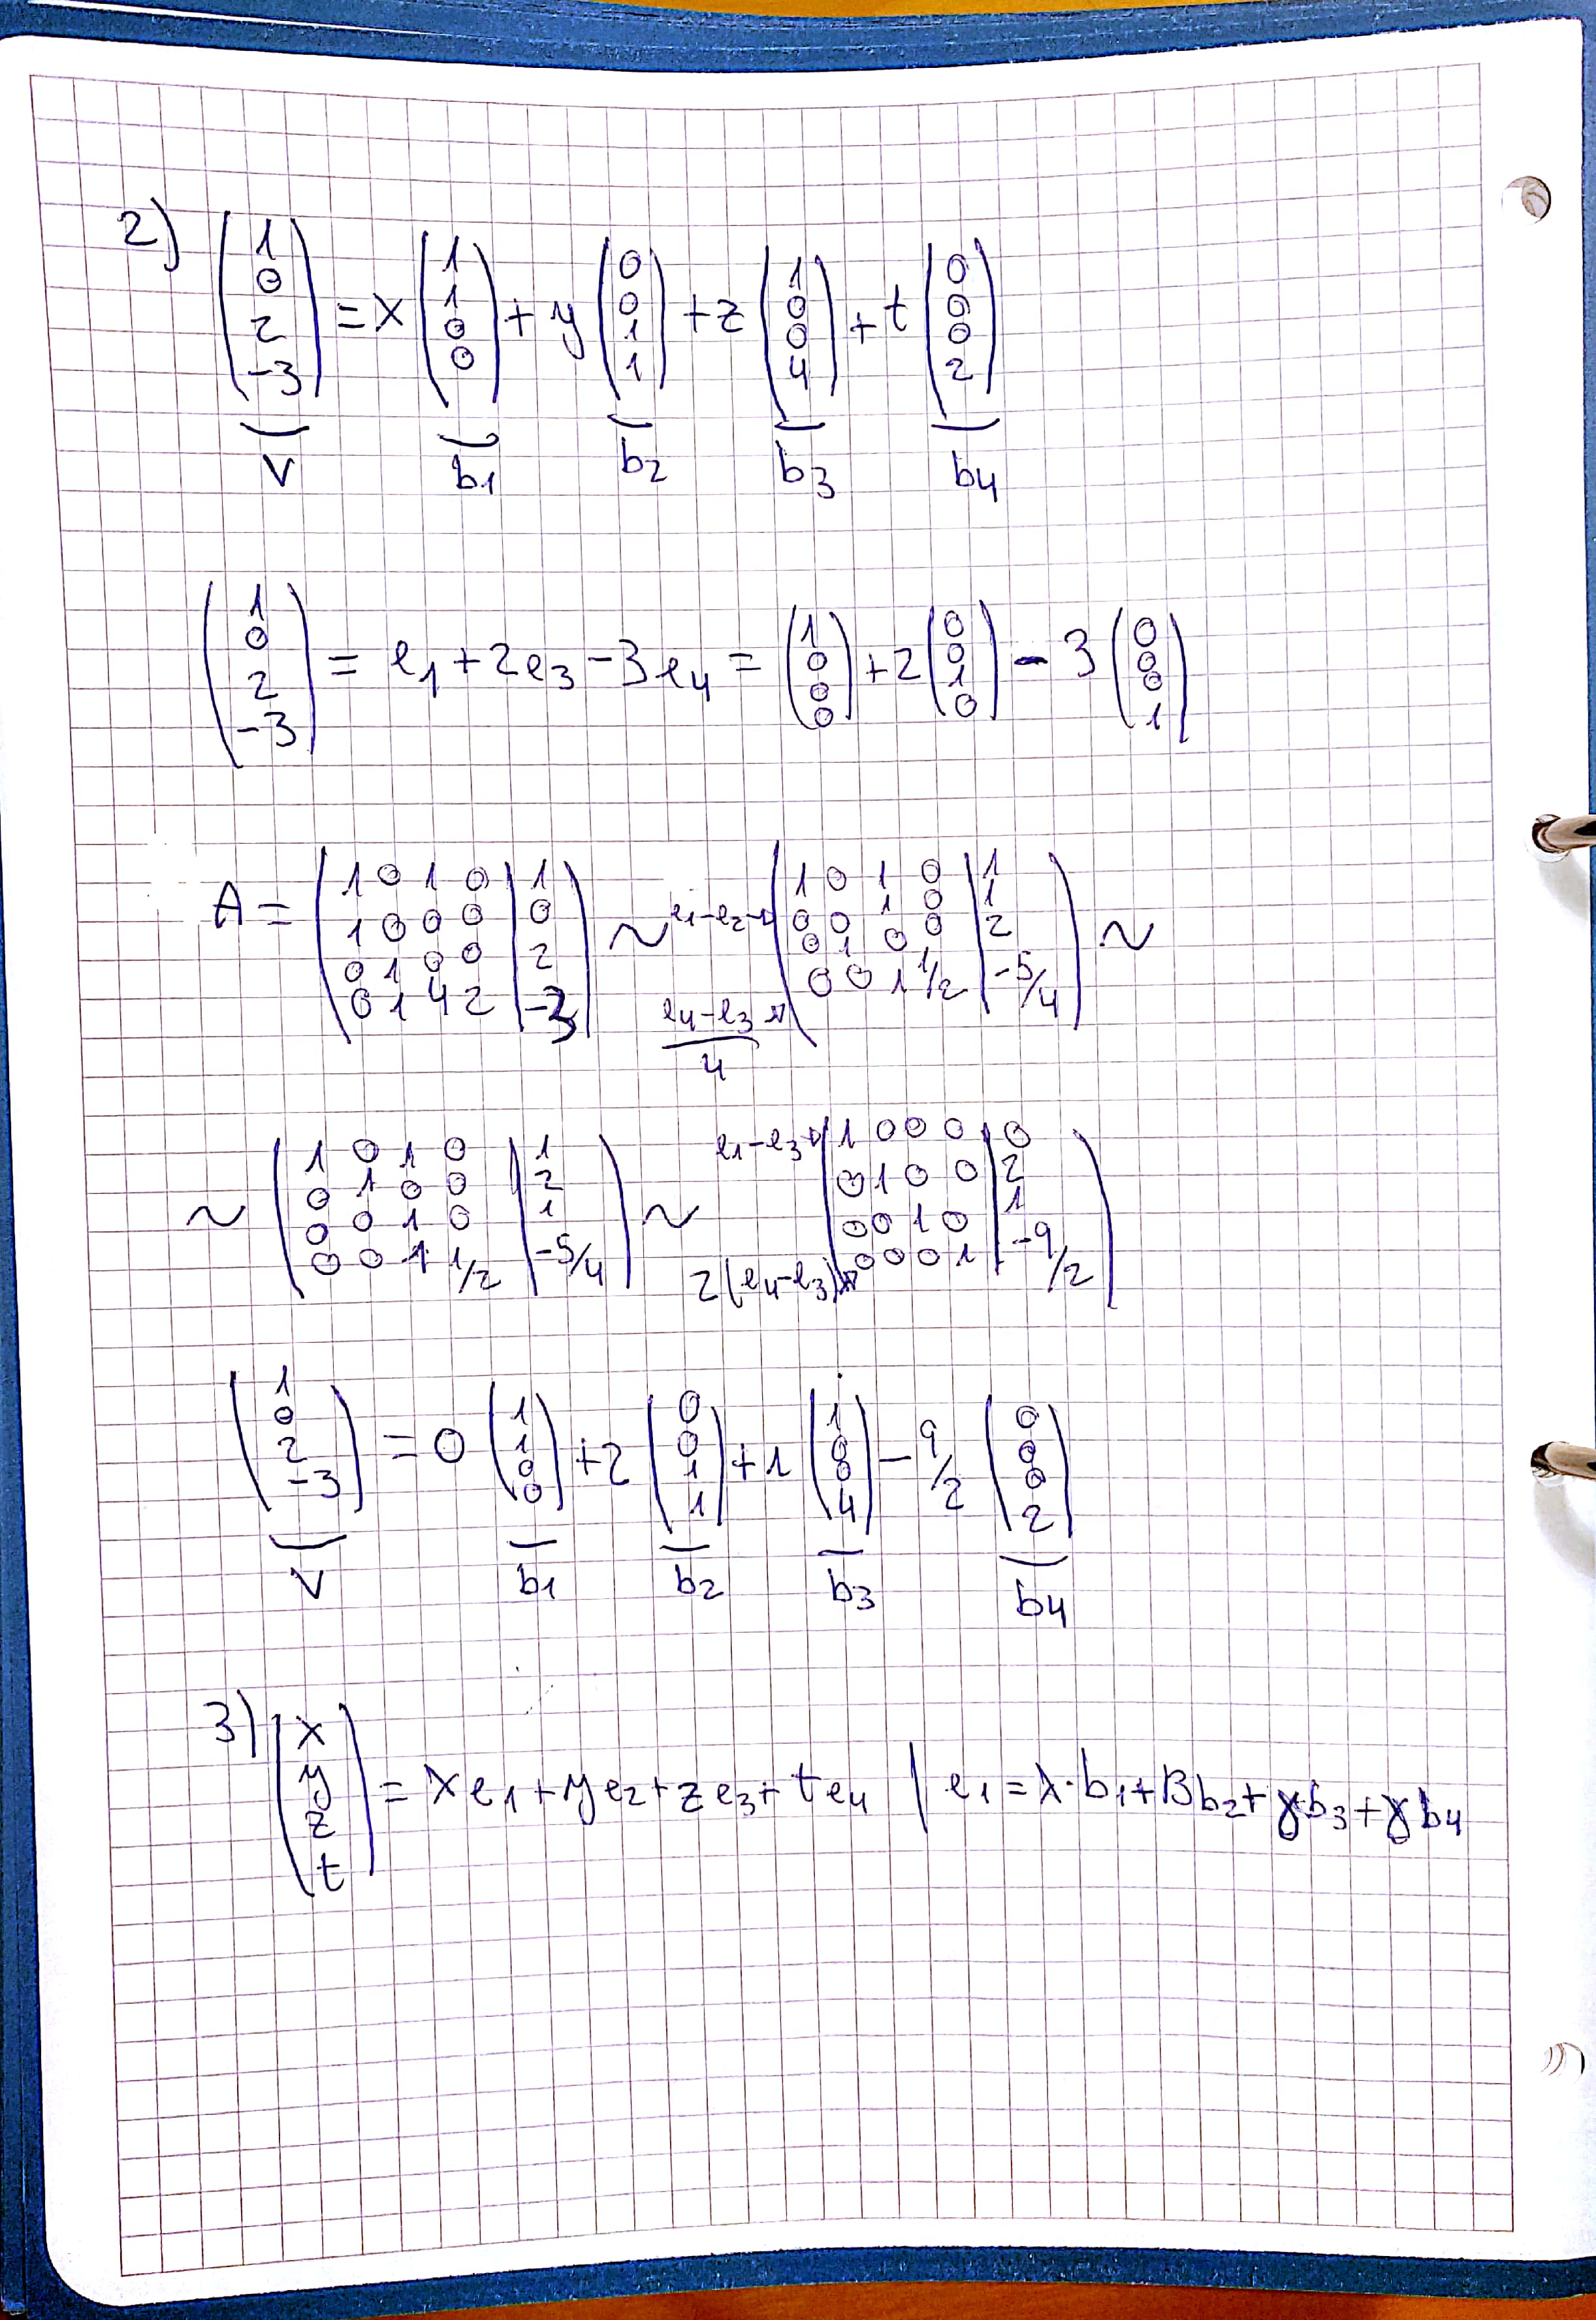 2) (1 0 2 -3) = x (1 1 0 0) + y (0 0 1 1) + z (1 0 0 4) + t (0 0 0 2)
v b1 b2 b3 b4
(1 0 2 -3) = e1 + 2e3 - 3e4 = (1 0 0 0) + 2 (0 0 1 0) - 3 (0 0 0 1)
A = (1 0 1 0 | 1
1 0 0 0 | 0
0 1 0 0 | 2
0 1 4 2 | -3) ~ e1-e2→ (e4-e3)/4 → (1 0 1 0 | 1
0 0 1 0 | 1
0 1 0 0 | 2
0 0 1 1/2 | -5/4) ~
~ (1 0 1 0 | 1
0 1 0 0 | 2
0 0 1 0 | 1
0 0 1 1/2 | -5/4) ~ e1-e3→ 2(e4-e3)→ (1 0 0 0 | 0
0 1 0 0 | 2
0 0 1 0 | 1
0 0 0 1 | -9/2)
(1 0 2 -3) = 0 (1 1 0 0) + 2 (0 0 1 1) + 1 (1 0 0 4) - 9/2 (0 0 0 2)
v b1 b2 b3 b4
3) (x y z t) = xe1 + ye2 + ze3 + te4 | e1 = λ·b1 + βb2 + γb3 + γb4